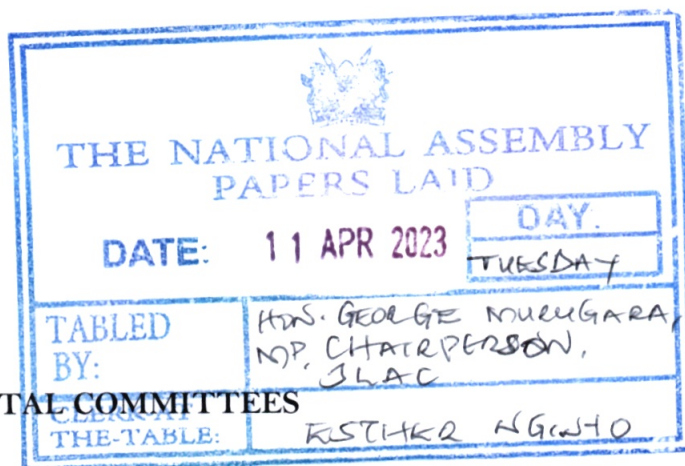 THE NATIONAL ASSEMBLY
PAPERS LAID
DATE: 11 APR 2023
DAY.
TUESDAY
TABLED BY:
HON. GEORGE MURUGARA,
MP, CHAIRPERSON,
JLAC
TAL COMMITTEES
CLERK AT
THE-TABLE:
ESTHER NGINYO